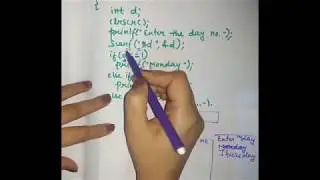 {
int d;
clrscr();
printf("Enter the day no.");
scanf("%d", &d);
if(
printf("monday
else if
else
Enter day
1 monday
Tuesday